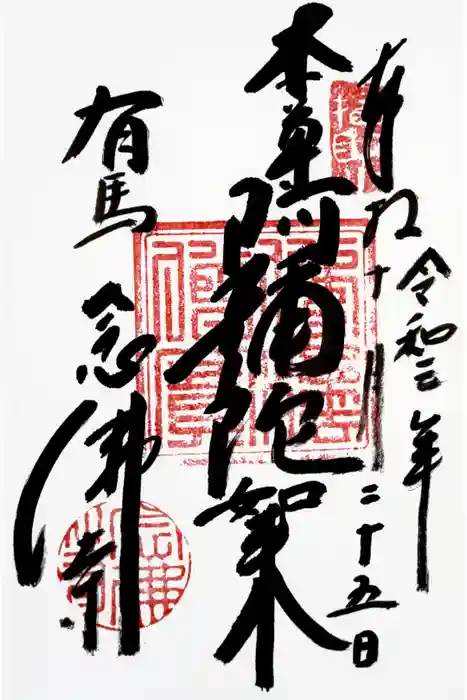 奉拝
令和 年
十月
二十五日
本尊阿彌陀如来
有馬
念佛寺